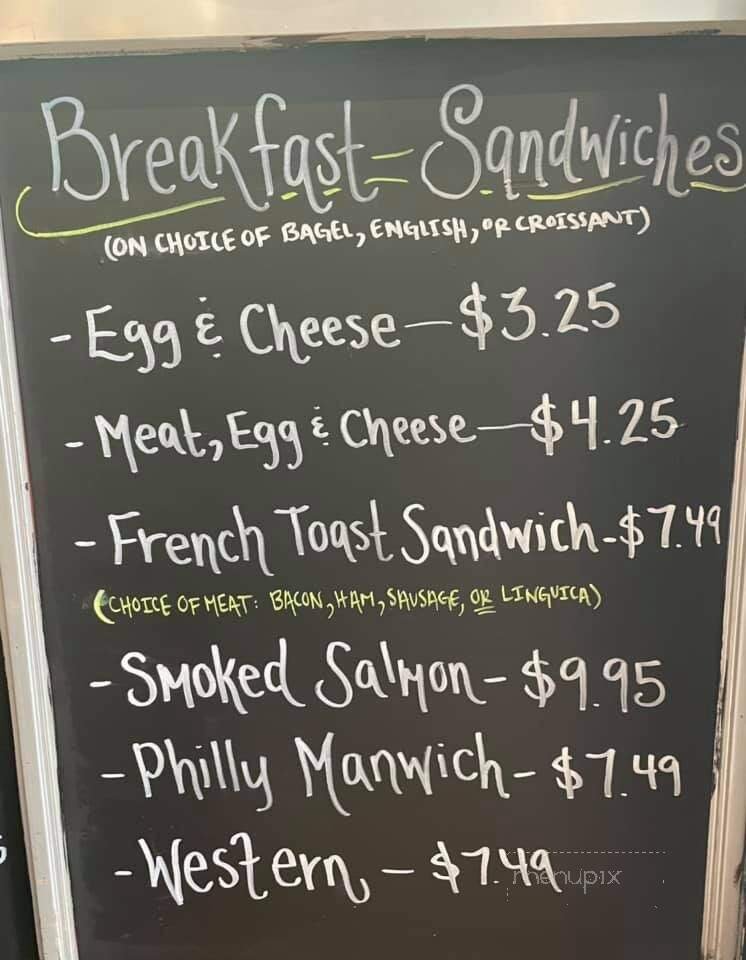 Breakfast Sandwiches
(ON CHOICE OF BAGEL, ENGLISH, OR CROISSANT)
- Egg & Cheese - $3.25
- Meat, Egg & Cheese - $4.25
- French Toast Sandwich - $7.49
(CHOICE OF MEAT: BACON, HAM, SAUSAGE, OR LINGUICA)
- Smoked Salmon - $9.95
- Philly Manwich - $7.49
- Western - $7.49
menupix